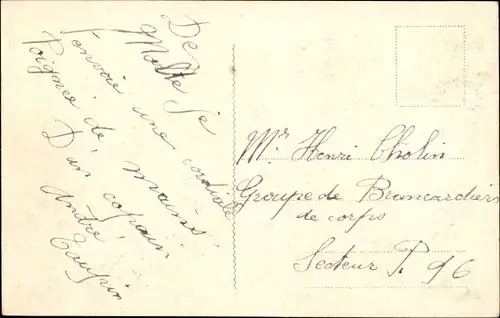 De
Malte je
t'envoie une cordiale
Poignée de mains
D'un copain
André
Taupin
Mr Henri Cholin
Groupe de Brancardiers
de corps
Secteur P. 96